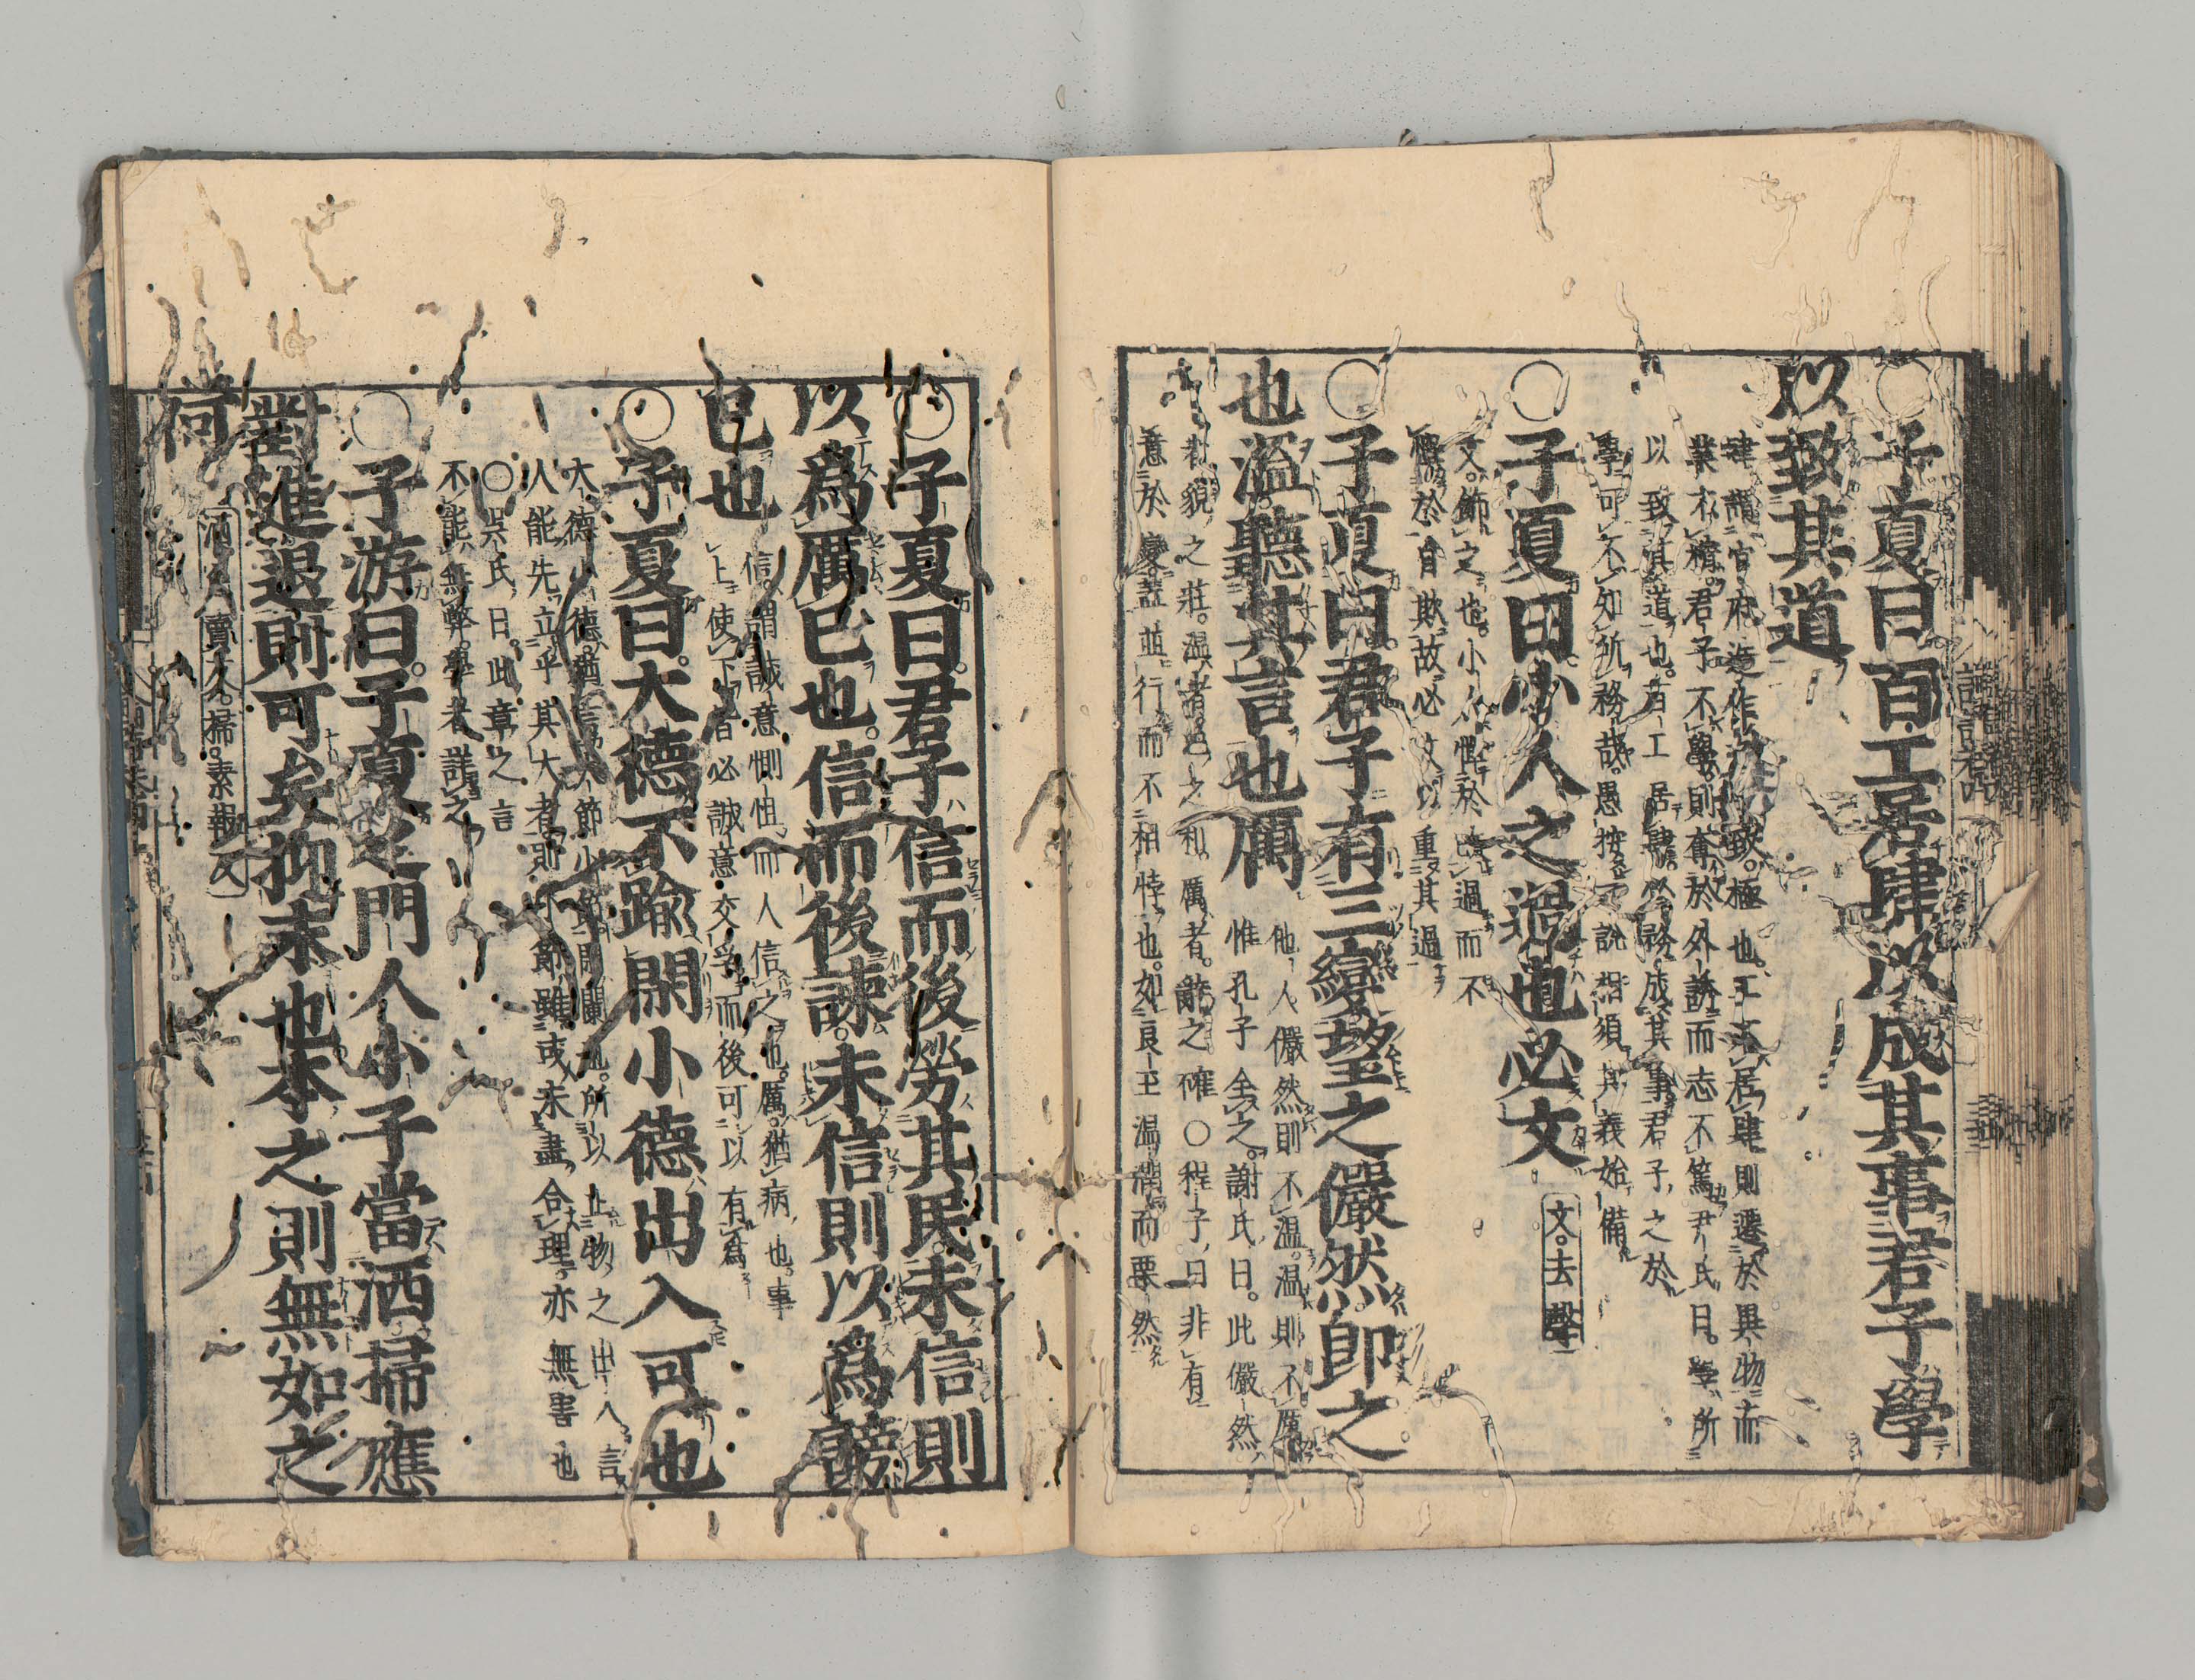 ○子夏曰百工居肆以成其事君子學
以致其道
肆謂官府造作之處致極也工不居肆則遷於異物而
業不精君子不學則奪於外誘而志不篤尹氏曰學所
以致其道也百工居肆必務成其事君子之於
學可不知所務哉愚按二說相須其義始備
○子夏曰小人之過也必文
文去聲
文飾之也小人憚於改過而不
憚於自欺故必文以重其過
○子夏曰君子有三變望之儼然即之
也溫聽其言也厲
他人儼然則不溫溫則不厲
惟孔子全之謝氏曰此儼然
者貌之莊溫者色之和厲者辭之確○程子曰非有
意於變蓋並行而不相悖也如良玉溫潤而栗然
○子夏曰君子信而後勞其民未信則
以爲厲己也信而後諫未信則以爲謗
己也
信謂誠意惻怛而人信之也厲猶病也事
上使下皆必誠意交孚而後可以有爲
○子夏曰大德不踰閑小德出入可也
大德小德猶言大節小節閑闌也所以止物之出入言
人能先立乎其大者則小節雖或未盡合理亦無害也
○吳氏曰此章之言
不能無弊學者詳之
○子游曰子夏之門人小子當洒掃應
對進退則可矣抑末也本之則無如之
何
洒色賣反掃素報反